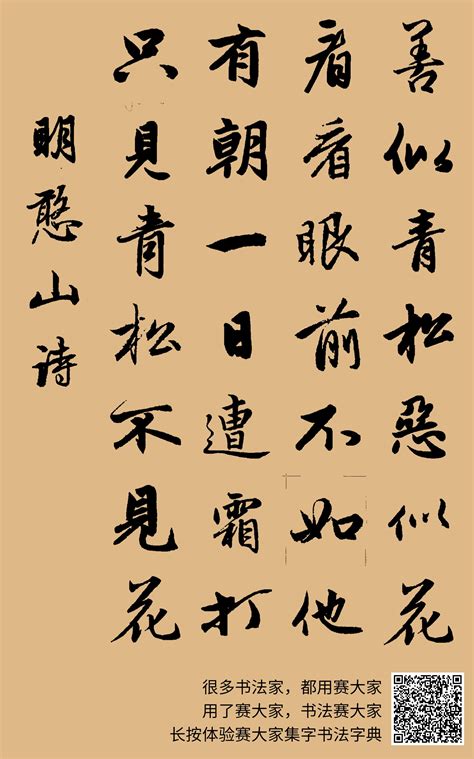 善似青松惡似花
看看眼前不如他
有朝一日遭霜打
只見青松不見花
明憨山诗
很多书法家，都用赛大家
用了赛大家，书法赛大家
长按体验赛大家集字书法字典